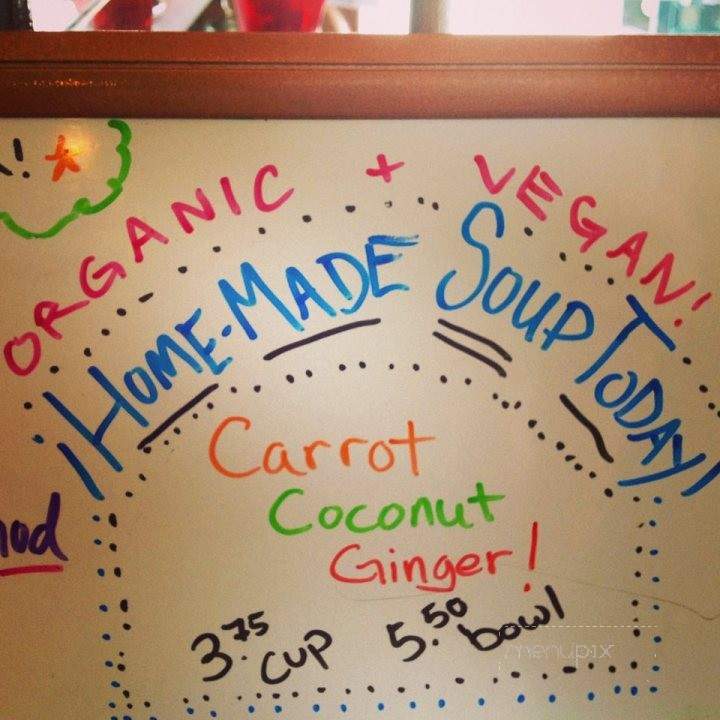 ! *
ORGANIC + VEGAN!
¡HOME-MADE SOUP TODAY!
Carrot
Coconut
Ginger!
3.75 cup 5.50 bowl
menupix